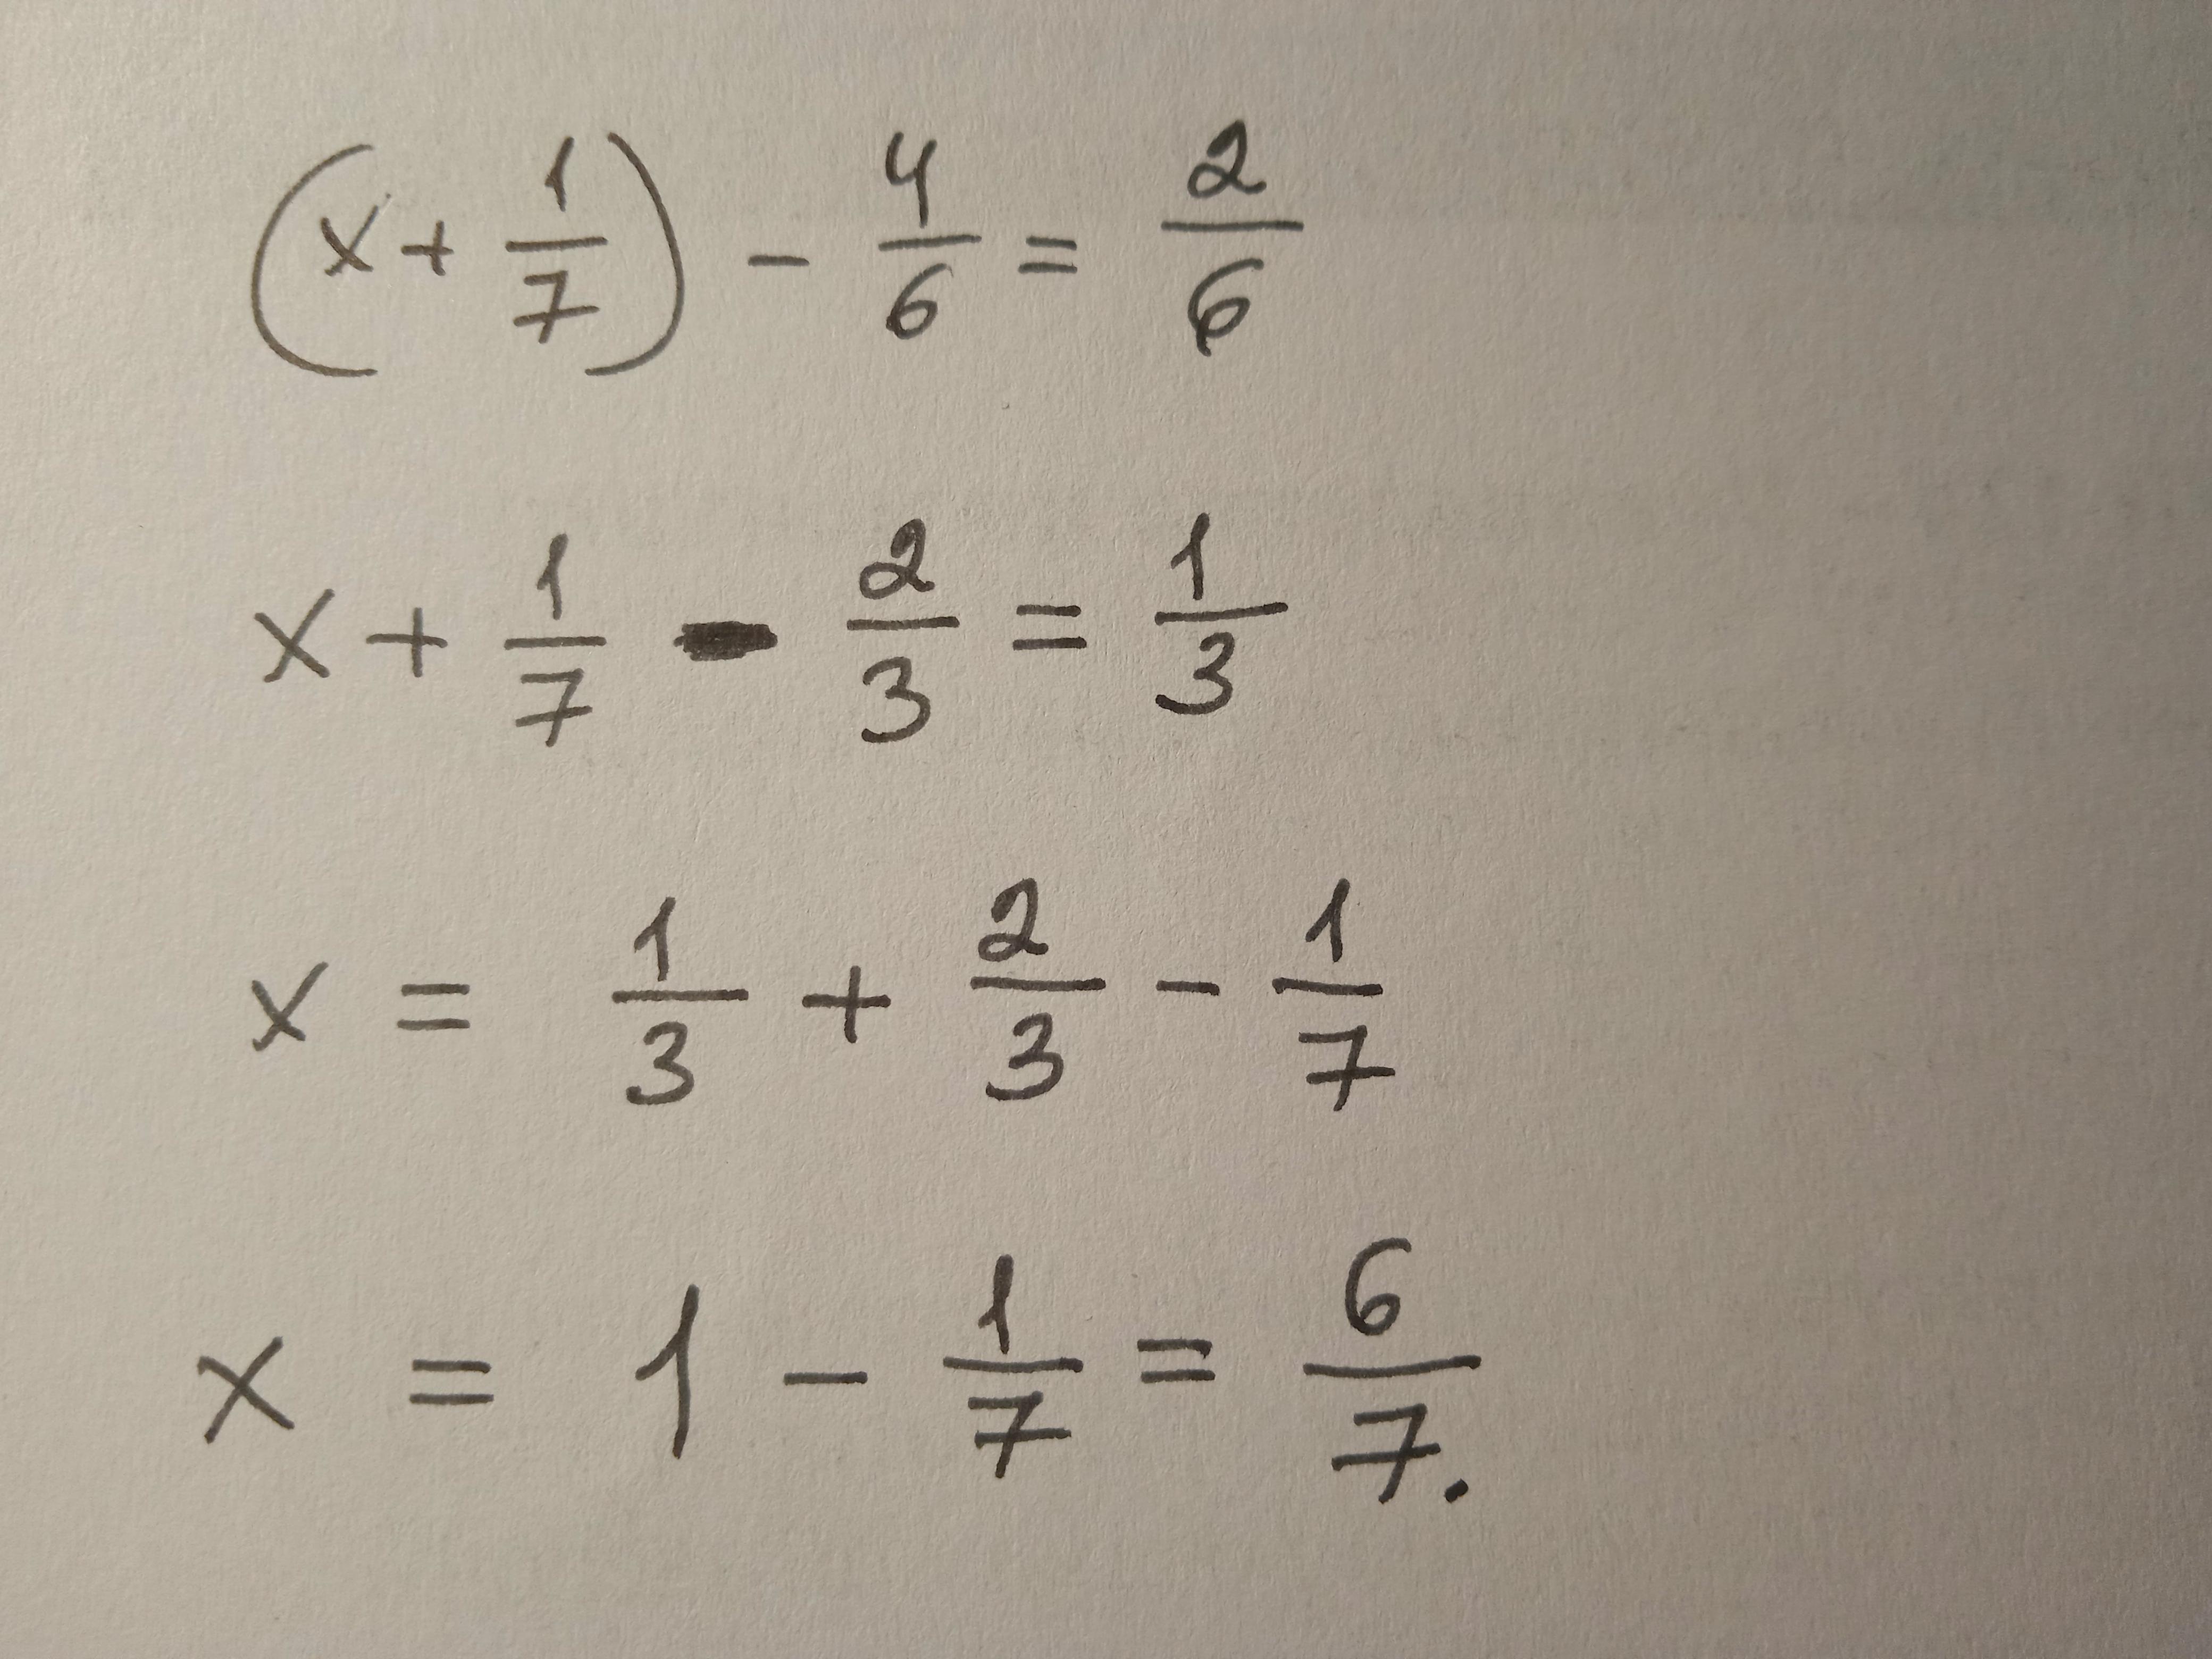 (x + 1/7) - 4/6 = 2/6
x + 1/7 - 2/3 = 1/3
x = 1/3 + 2/3 - 1/7
x = 1 - 1/7 = 6/7.